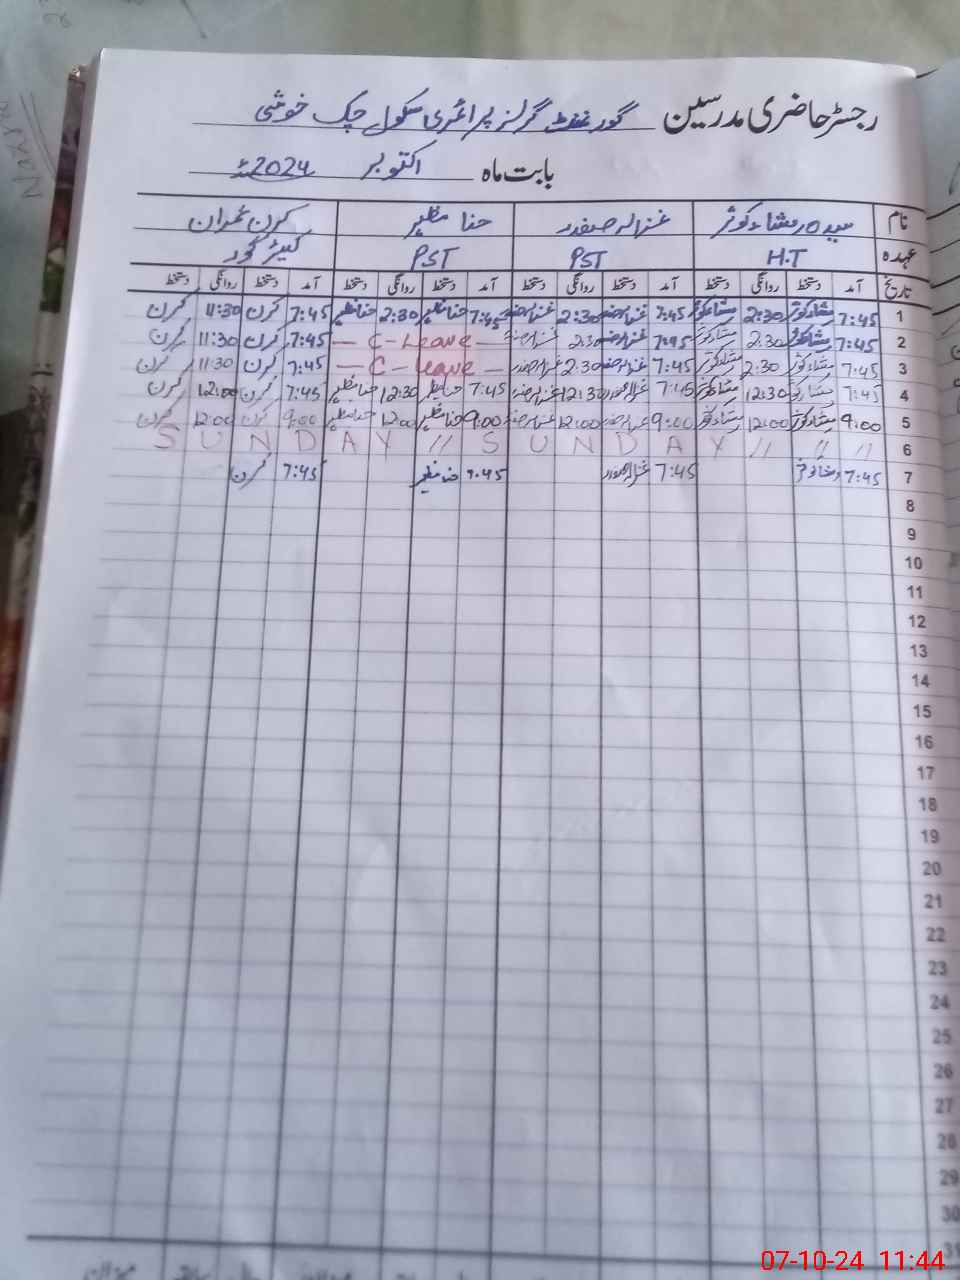 رجسٹر حاضری مدرسین گورنمنٹ گرلز پرائمری سکول چک خوشی
بابت ماہ اکتوبر 2024ء
نام سیدہ رمشاء کوثر غزالہ صفدر حنا مظہر کرن عمران
عہدہ H.T PST PST کیئر گور
تاریخ آمد دستخط روانگی دستخط آمد دستخط روانگی دستخط آمد دستخط روانگی دستخط آمد دستخط روانگی دستخط
1 7:45 رمشاء کوثر 2:30 رمشاء کوثر 7:45 غزالہ صفدر 2:30 غزالہ صفدر 7:45 حنا مظہر 2:30 حنا مظہر 7:45 کرن 11:30 کرن
2 7:45 رمشاء کوثر 2:30 رمشاء کوثر 7:45 غزالہ صفدر 2:30 غزالہ صفدر — C - Leave — 7:45 کرن 11:30 کرن
3 7:45 رمشاء کوثر 2:30 رمشاء کوثر 7:45 غزالہ صفدر 2:30 غزالہ صفدر — C - Leave — 7:45 کرن 11:30 کرن
4 7:45 رمشاء کوثر 12:30 رمشاء کوثر 7:45 غزالہ صفدر 12:30 غزالہ صفدر 7:45 حنا مظہر 12:30 حنا مظہر 7:45 کرن 12:00 کرن
5 9:00 رمشاء کوثر 12:00 رمشاء کوثر 9:00 غزالہ صفدر 12:00 غزالہ صفدر 9:00 حنا مظہر 12:00 حنا مظہر 9:00 کرن 12:00 کرن
S U N D A Y // S U N D A Y // // // 6
7 7:45 رمشاء کوثر 7:45 غزالہ صفدر 7:45 حنا مظہر 7:45 کرن
8
9
10
11
12
13
14
15
16
17
18
19
20
21
22
23
24
25
26
27
28
29
30
31
07-10-24 11:44